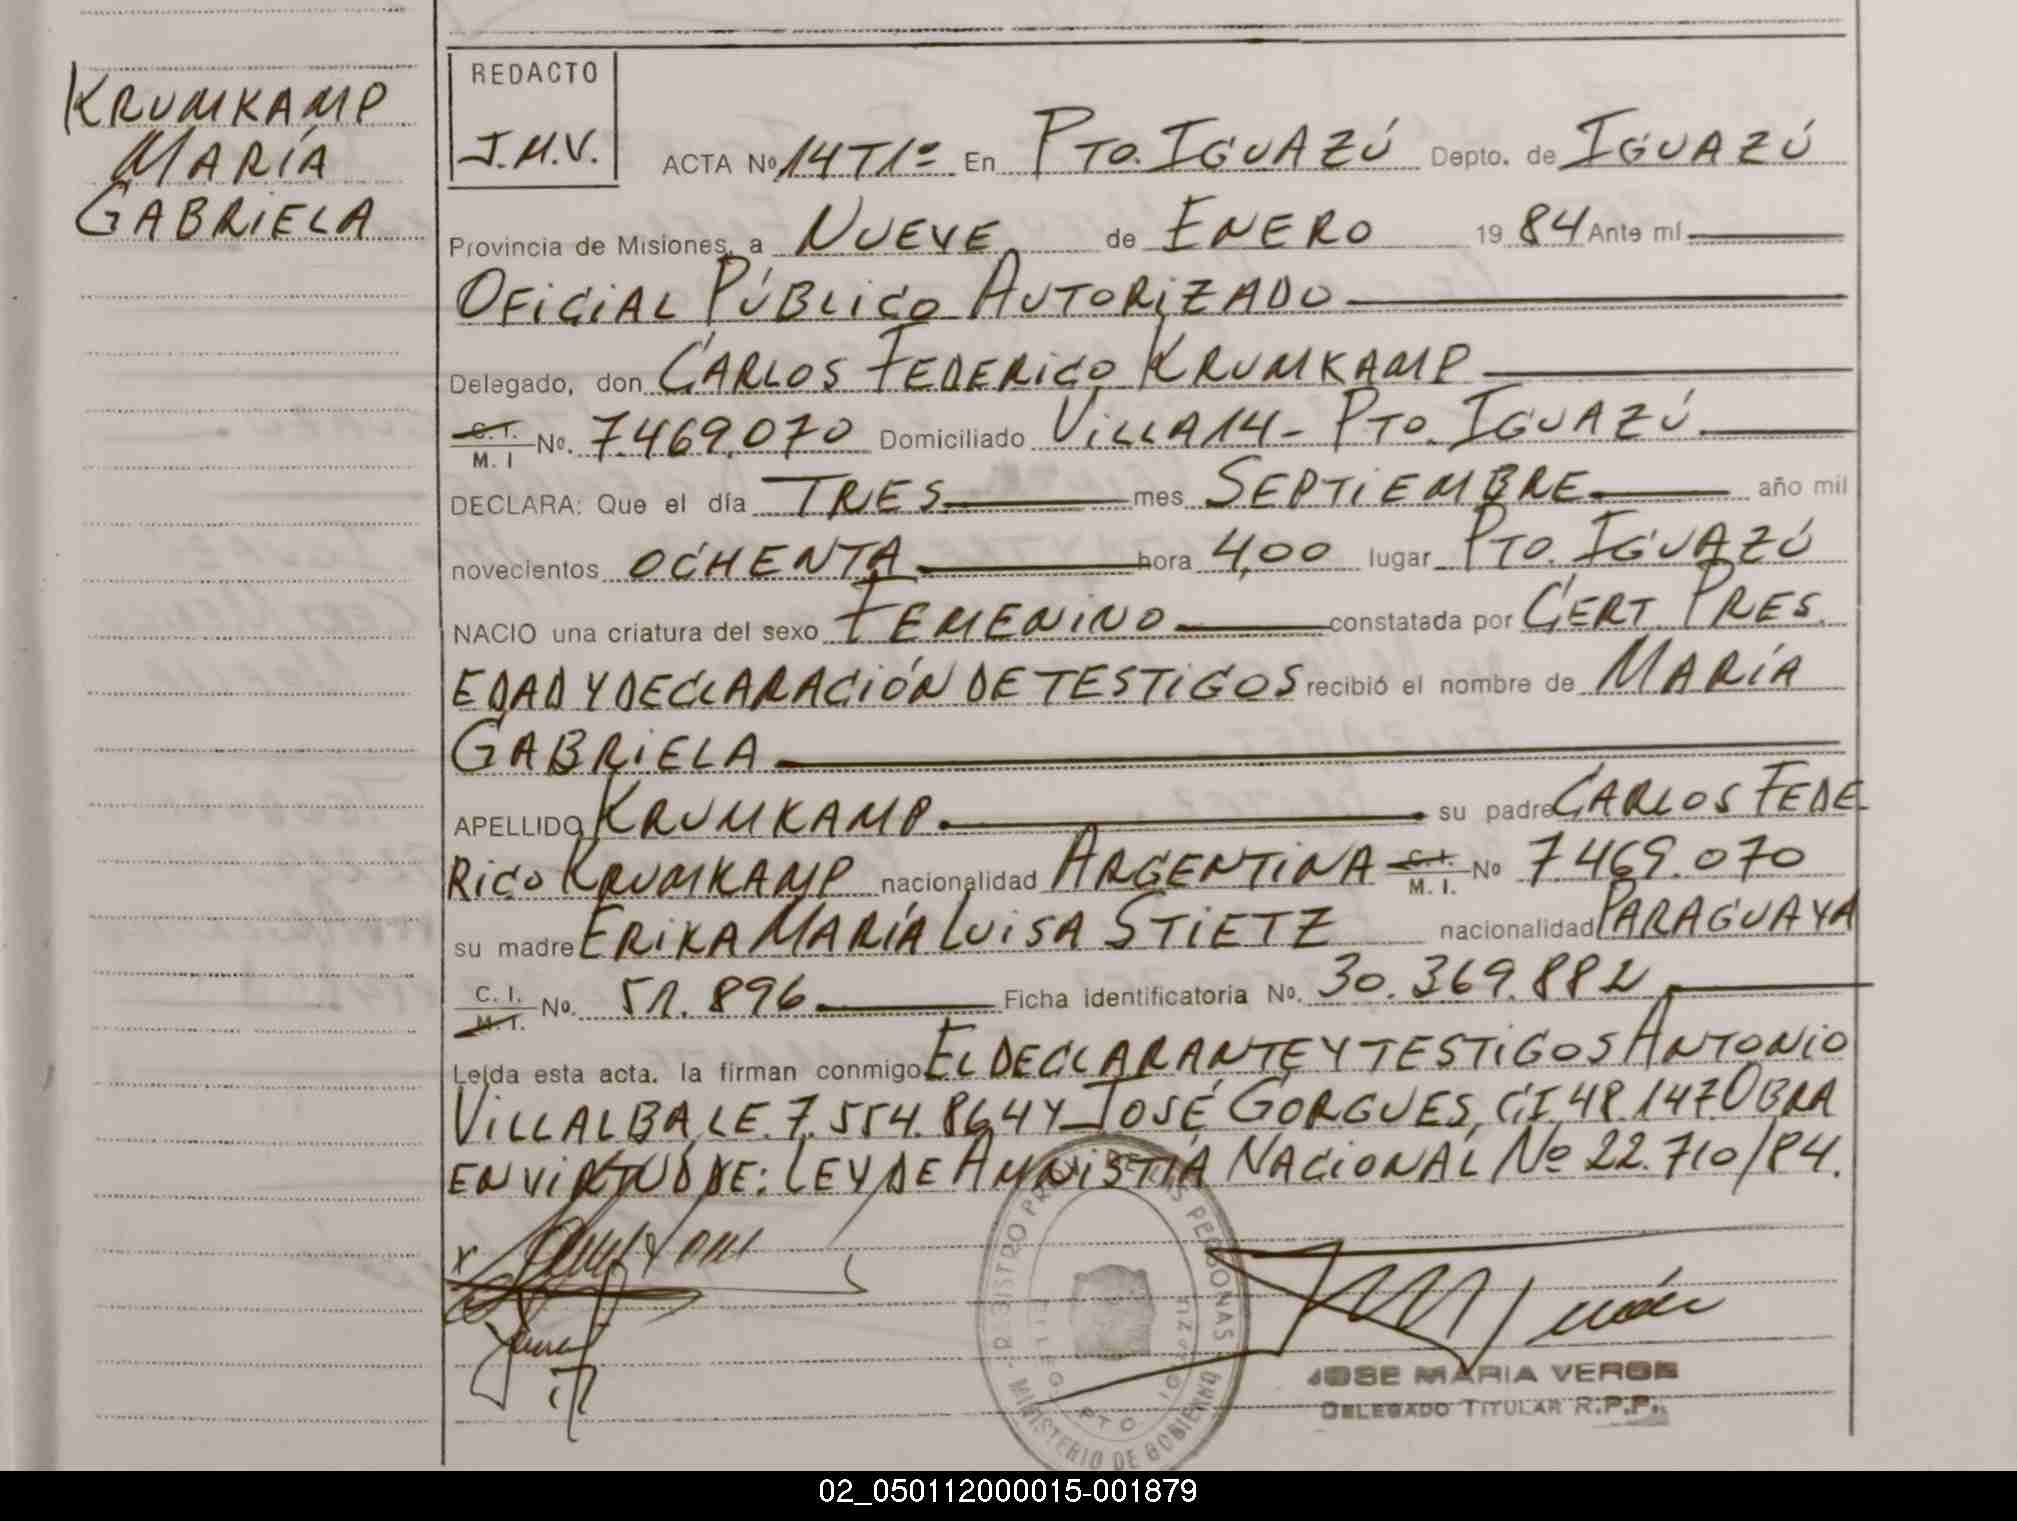 KRUMKAMP
MARÍA
GABRIELA
REDACTO
J.M.V.
ACTA Nº 14T1º En PTO. IGUAZÚ Depto. de IGUAZÚ
Provincia de Misiones, a NUEVE de ENERO 19 84 Ante mí
OFICIAL PÚBLICO AUTORIZADO
Delegado, don CARLOS FEDERICO KRUMKAMP
C.I. M. I Nº. 7.469.070 Domiciliado VILLA 14 - PTO. IGUAZÚ.
DECLARA: Que el día TRES mes SEPTIEMBRE año mil
novecientos OCHENTA hora 4,00 lugar PTO. IGUAZÚ
NACIO una criatura del sexo FEMENINO constatada por CERT. PRES.
EDAD Y DECLARACIÓN DE TESTIGOS recibió el nombre de MARÍA
GABRIELA
APELLIDO KRUMKAMP su padre CARLOS FEDE
RICO KRUMKAMP nacionalidad ARGENTINA C.I. M. I. Nº 7.469.070
su madre ERIKA MARÍA LUISA STIETZ nacionalidad PARAGUAYA
C. I. M.I. Nº. 51.896 Ficha identificatoria Nº. 30.369.882
Leída esta acta. la firman conmigo EL DECLARANTE Y TESTIGOS ANTONIO
VILLALBA, LE. 7.554.864 Y JOSÉ GORGUES, C.I 48.147. OBRA
EN VIRTUD DE: LEY DE AMNISTÍA NACIONAL Nº 22.710/84.
REGISTRO PROV. DE LAS PERSONAS
MINISTERIO DE GOBIERNO
PTO IGUAZU
JOSE MARIA VERON
DELEGADO TITULAR R.P.P.
02_050112000015-001879